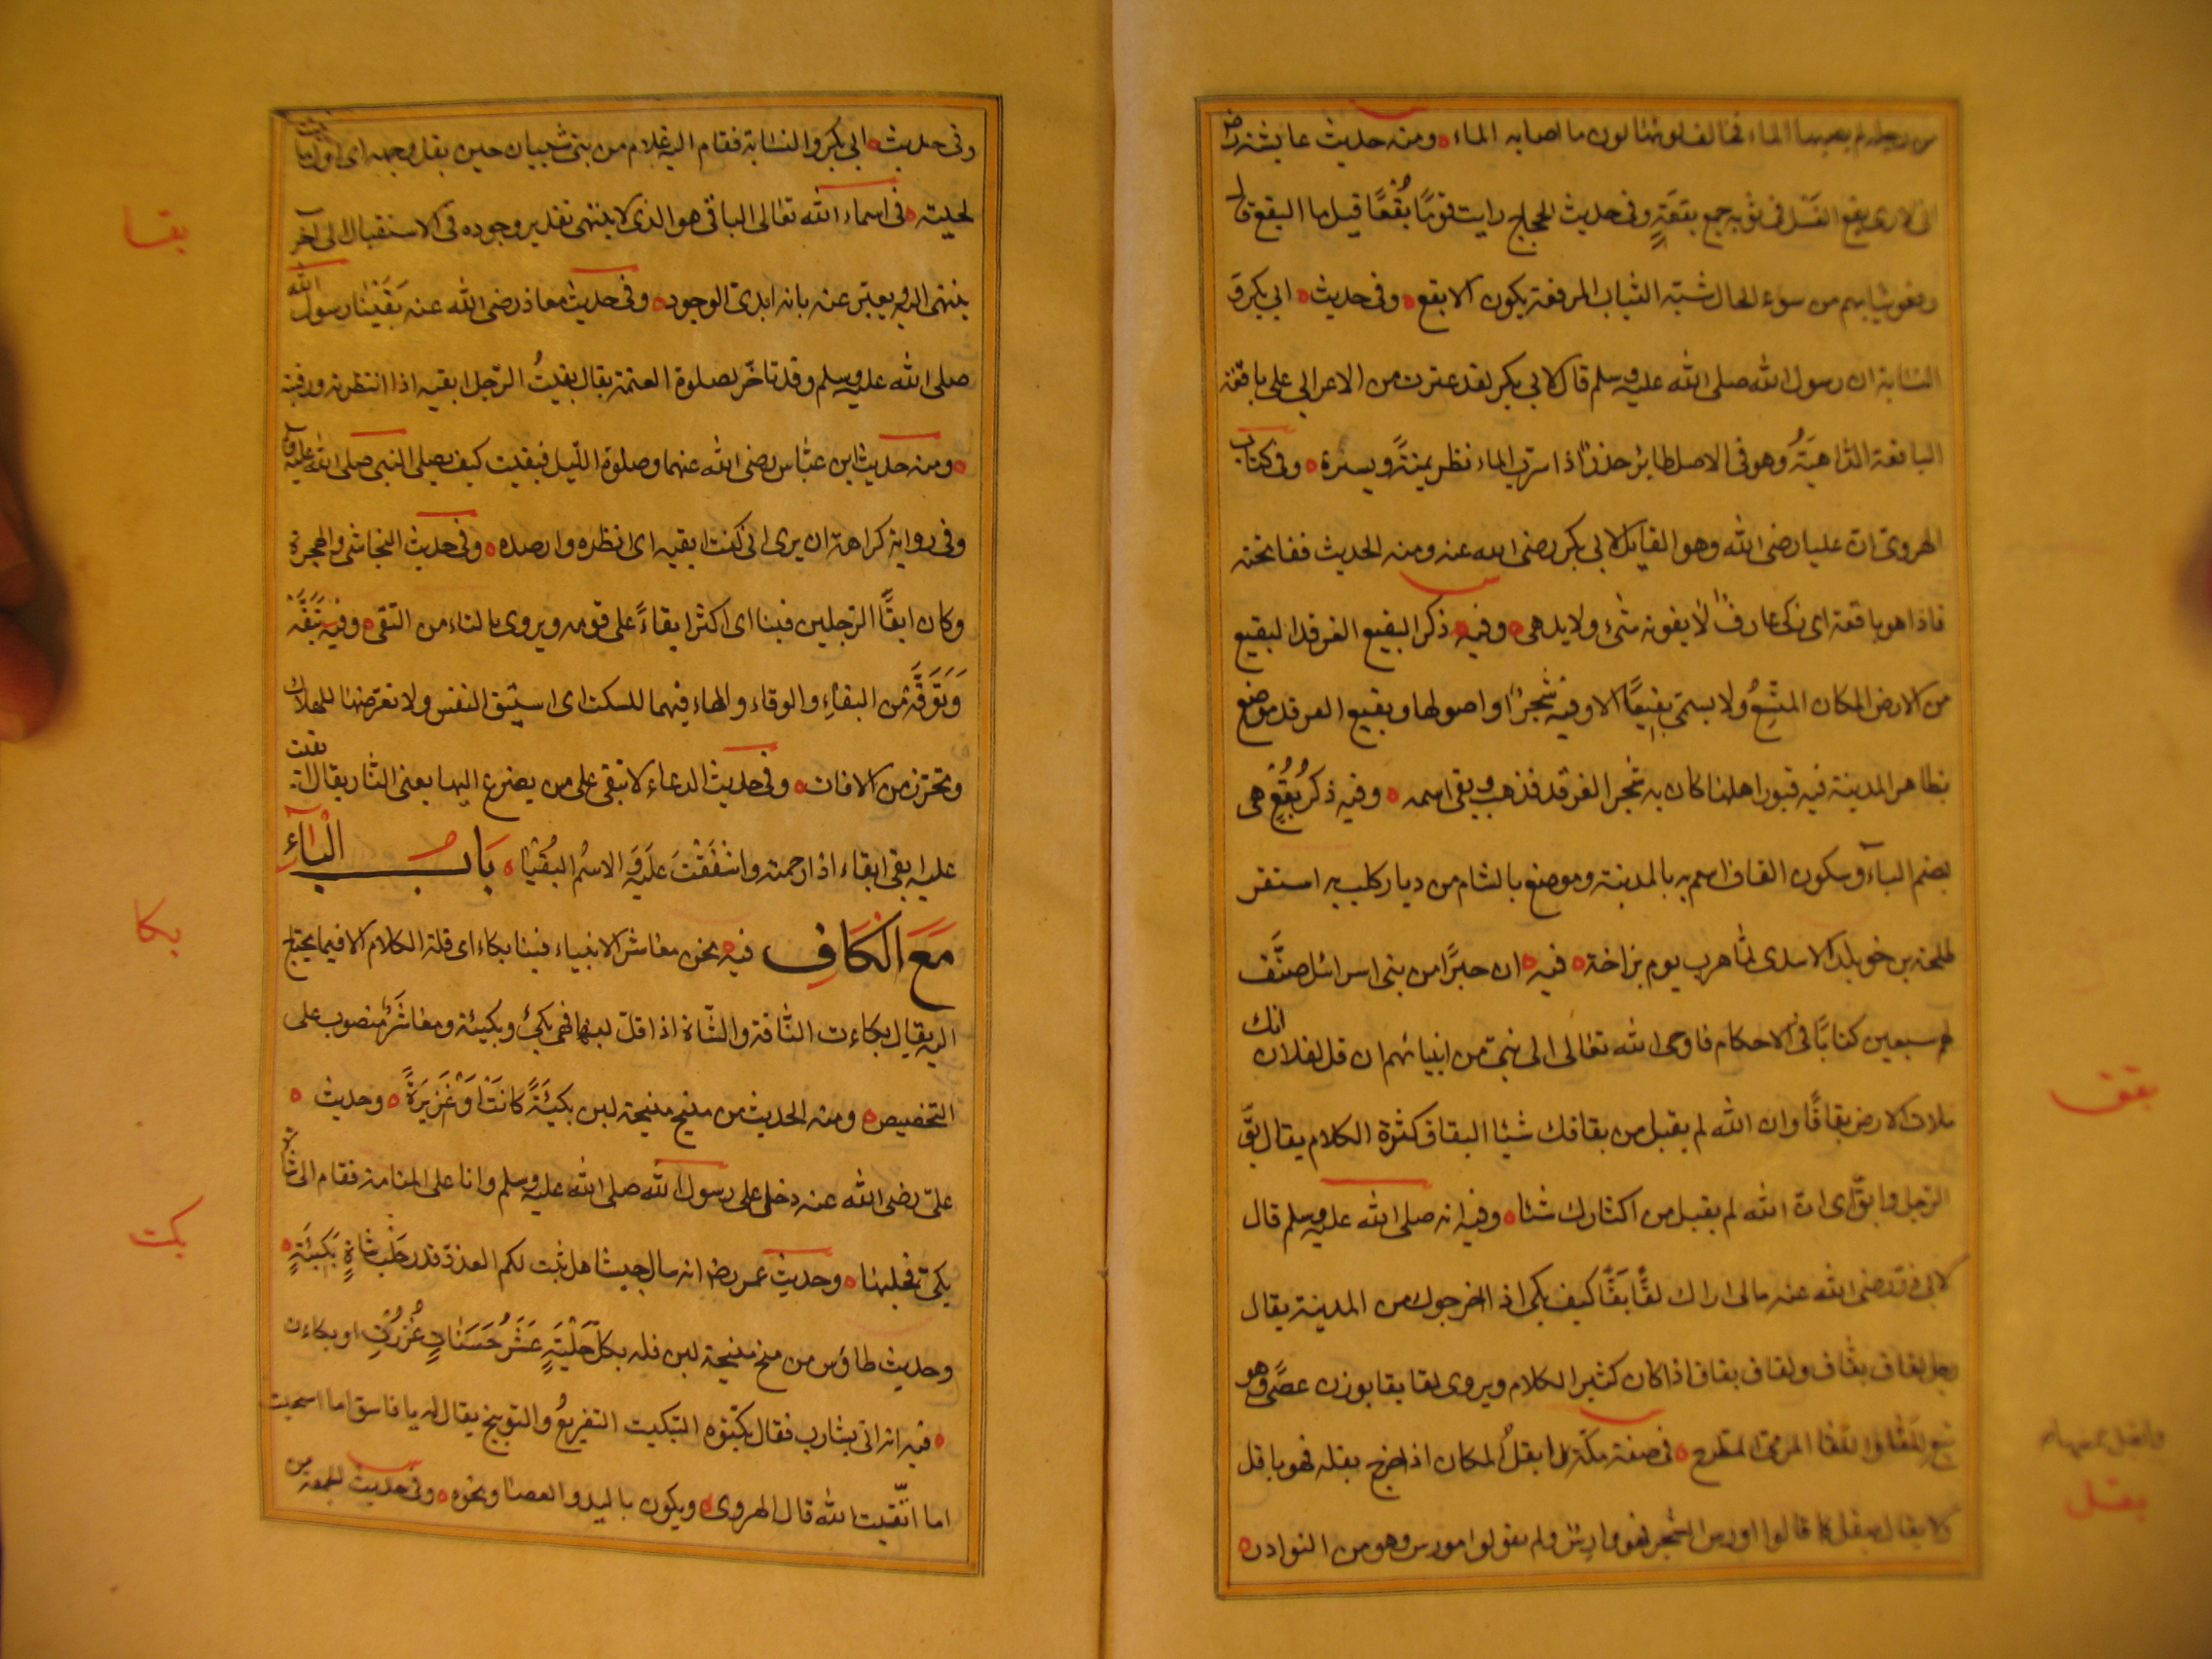 من رجليه لم يصبها الماء فخالف لونها لون ما اصابه الماء ومنه حديث عايشة رض
انى لارى بقع الغسل فى ثوبه جمع بقعة وفى حديث الحجاج رايت قومًا بُقْعًا قيل ما البقع قال
رقعوا ثيابهم من سوء الحال شبّه الثياب المرقعة بكون الابقع وفى حديث ابى بكر و
النسّابة ان رسول الله صلى الله عليه وسلم قال لابى بكر لقد عثرت من الاعرابي على باقعة
الباقعة الدّاهيَةُ وهو فى الاصل طاير حذرٌ اذا شرب الماء نظر يمنةً ويسرة وفى كتاب
الهروى ان عليا رضى الله وهو القايل لابى بكر رضى الله عنه ومنه الحديث ففاتحته
فاذا هو باقعة اى ذكى عارفٌ لا يفوته شئ ولا يدهى وفيه ذكر البقيع الغرقد البقيع
من الارض المكان المتّسِعُ ولا يسمّى بقِيعًا الا وفيه شجرٌ او اصولها وبقيع الغرقد موضع
بظاهر المدينة فيه قبور اهلها كان به شجر الغرقد فذهب وبقى اسمه وفيه ذكر بُقُعٍ هى
بضم الباء وسكون القاف اسم بير بالمدينة وموضع بالشام من ديار كلب به استقر
طليحة بن خويلد الاسدى لمّا هرب يوم بزاخة فيه ان حبرًا من بنى اسرائيل صنَّف
لهم سبعين كتابًا فى الاحكام فاوحى الله تعالى الى نبى من انبيائهم ان قل لفلان انك
ملات الارض بقاقًا وان الله لم يقبل من بقاقك شيئا البقاق كثرة الكلام يقال بقّ
الرجل وابقّ اى ان الله لم يقبل من اكثارك شيئا وفيه انه صلى الله عليه وسلم قال
لابى ذر رضى الله عنه مالى اراك لقًّا بقًّا كيف بك اذا اخرجوك من المدينة يقال
رجل لقاق بقّاق ولقاق بقاق اذا كان كثير الكلام ويروى لقا بقا بوزن عصًى وهو
تبع للقا واللقا المرمى المطرح فى صفة مكة وابقل المكان اذا خرج بقله فهو باقل
ولا يقال مبقل كما قالوا اورس الشجر فهو وارس ولم يقولوا مورس وهو من النوادر
بقق
وابقل حمضها
بقل
وفى حديث ابى بكر والنسّابة فقام اليه غلام من بنى شيبان حين بقل وجهه اى اول ما نبتت
لحيته فى اسماء الله تعالى الباقى هو الذى لا ينتهى تقدير وجوده فى الاستقبال الى آخر
ينتهى اليه ويعبّر عنه بانه ابدى الوجود وفى حديث معاذ رضى الله عنه بَقَيْنا رسول الله
صلى الله عليه وسلم وقد تاخّر لصلوة العتمة يقال بقيتُ الرّجل ابقيه اذا انتظرته ورقبته
ومنه حديث ابن عبّاس رضى الله عنهما وصلوة الليل فبقيت كيف يصلى النبى صلى الله عليه و
وفى رواية كراهة ان يرى انى كنت ابقيه اى انظره وارصده وفى حديث النجاشى والهجرة
وكان ابقًا الرّجلين فينا اى اكثر ابقاءً على قومه ويروى بالتاء من التّقى وفيه تَبَقَّهْ
وَتَوَقَّهْ من البقاءِ والوقاء والهاء فيهما للسكت اى استبق النفس ولا تعرّضها للهلاك
وتحترز من الافات وفى حديث الدعاء لا تبقى على من يضرع اليها يعنى النّار يقال ابقيت
عليه ابقى ابقاء اذا رحمته واشْفَقْتَ عَلَيه والاسمُ البُقْيَا بَابُ الْبَاءِ
مَعَ الْكَافِ فيه نحن معاشر الانبياء فينا بكاء اى قلة الكلام الا فيما يحتاج
اليه يقال بكاءت النّاقة والشّاة اذا قلّ لبنها فهى بكئ وبكيئة ومعاشَرَ منصوب على
التخصيص ومنه الحديث من منيح منيحة لبن بكيئَةً كانَتْ اَوْ غَزِيرَةً وحديث
علىّ رضى الله عنه دخل على رسول الله صلى الله عليه وسلم وانا على المنامة فقام الى شاة
بكى فحلبها وحديث عمر رضه انه سال جيشا هل ثبت لكم العدو قدر حَلْب شاةٍ بَكِيئَةٍ
وحديث طاؤس من منح منيحة لبن فله بكلّ حَلْبَةٍ عَشَرُ حَسَناتٍ غُزرَتْ او بكاءت
فيه انه اتى بشارب فقال بكّتوه التبكيت التقريعُ والتوبيخ يقال له يا فاسق اما استحييت
اما اتّقيت الله قال الهروى ويكون باليد والعصا ونحوه وفى حديث الجمعة من
بقا
بكا
بكت